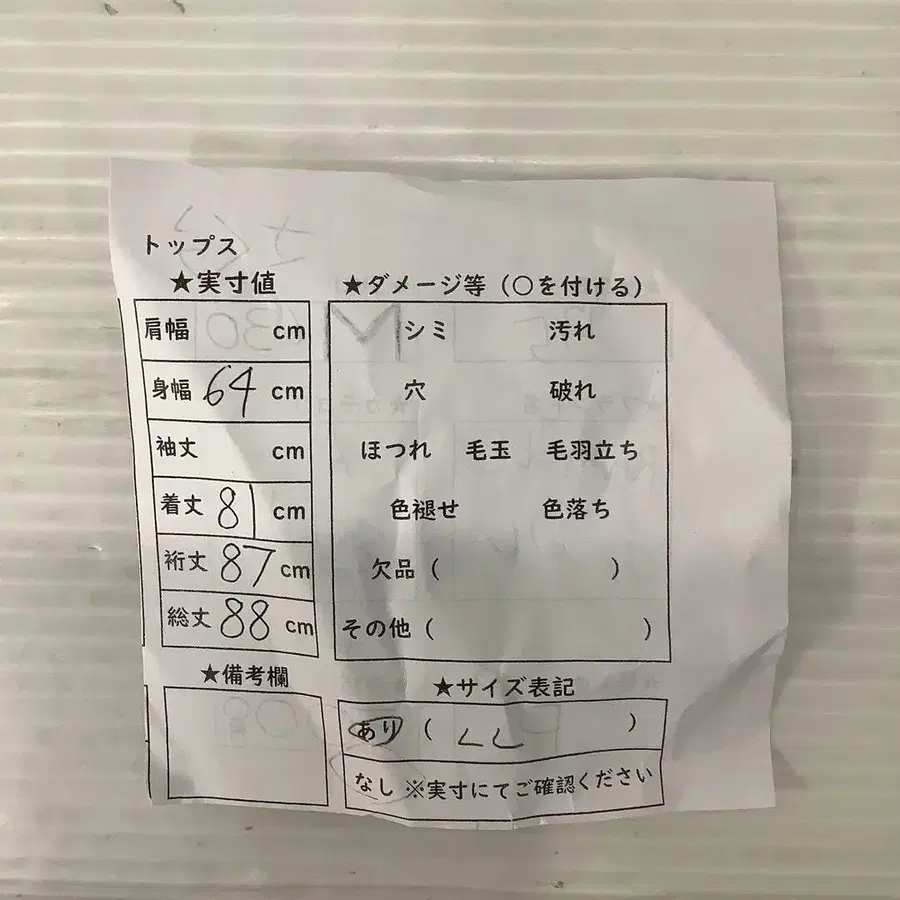 トップス
★実寸値
肩幅 cm
身幅 64 cm
袖丈 cm
着丈 81 cm
裄丈 87 cm
総丈 88 cm
★備考欄
★ダメージ等（○を付ける）
シミ 汚れ
穴 破れ
ほつれ 毛玉 毛羽立ち
色褪せ 色落ち
欠品（ ）
その他（ ）
★サイズ表記
あり （ LL ）
なし ※実寸にてご確認ください